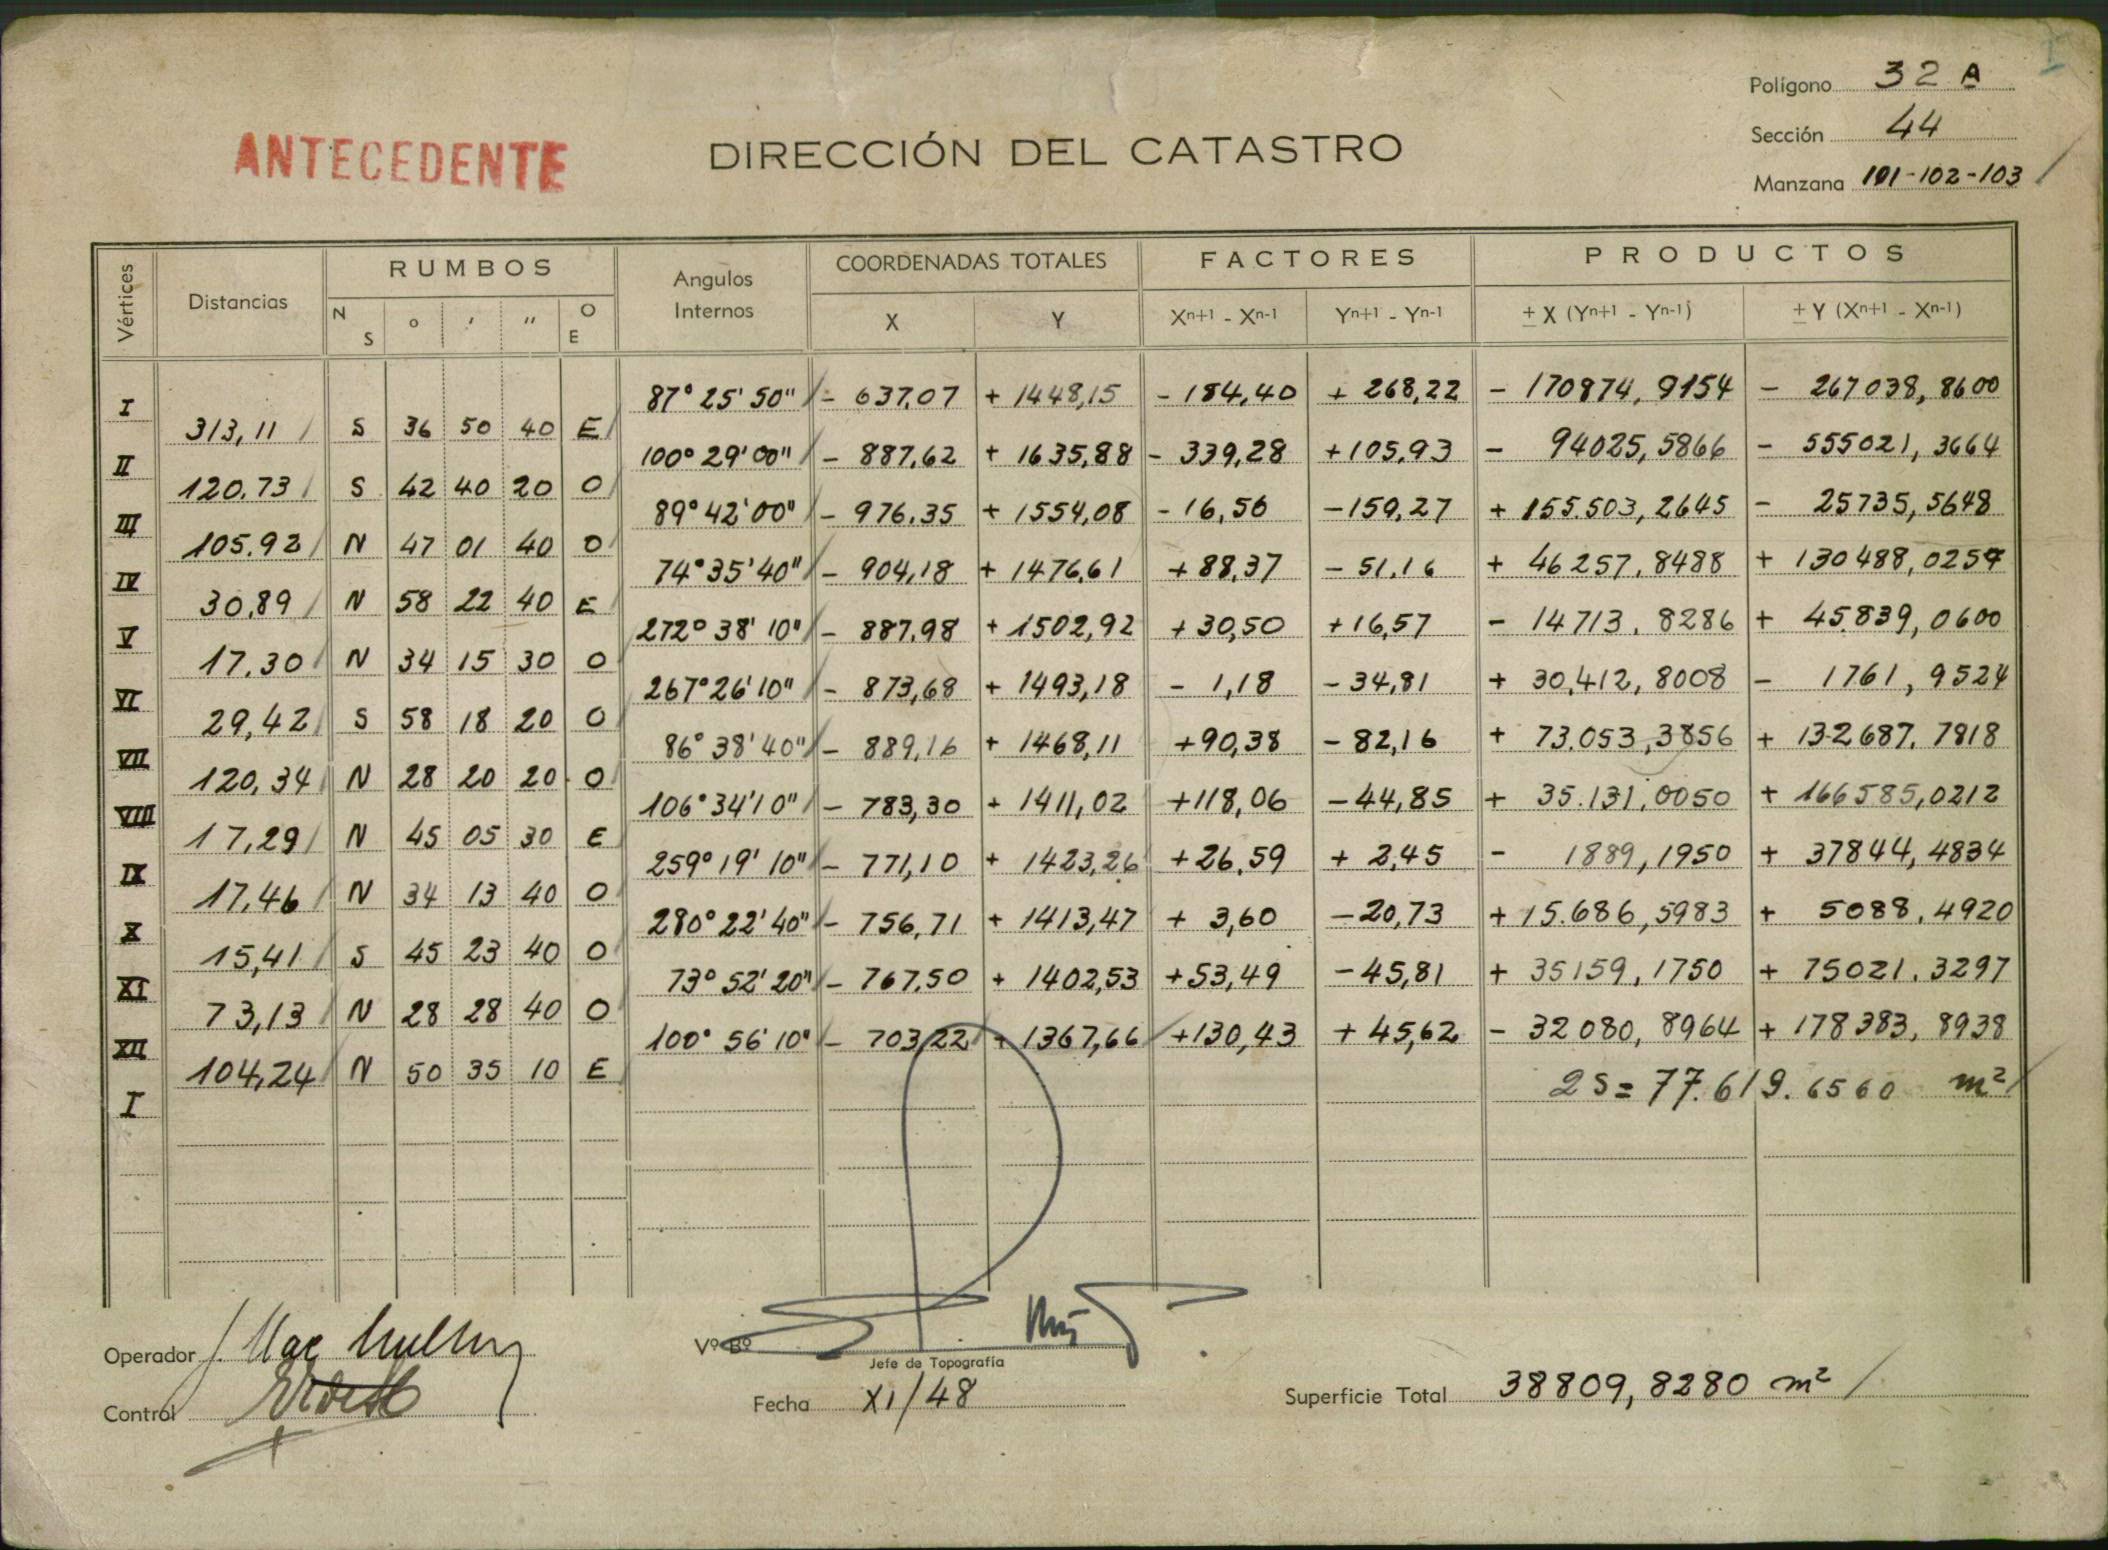 Polígono 32 A
Sección 44
Manzana 101-102-103
ANTECEDENTE
DIRECCIÓN DEL CATASTRO
Vértices Distancias RUMBOS Angulos Internos COORDENADAS TOTALES FACTORES PRODUCTOS
N S ° ' " O E X Y Xn+1 - Xn-1 Yn+1 - Yn-1 ± X (Yn+1 - Yn-1) ± Y (Xn+1 - Xn-1)
I 87° 25' 50" - 637,07 + 1448,15 - 184,40 + 268,22 - 170874,9154 - 267038,8600
313,11 S 36 50 40 E
II 100° 29' 00" - 887,62 + 1635,88 - 339,28 +105,93 - 94025,5866 - 555021,3664
120,73 S 42 40 20 O
III 89° 42' 00" - 976,35 + 1554,08 - 16,56 -159,27 + 155.503,2645 - 25735,5648
105,92 N 47 01 40 O
IV 74° 35' 40" - 904,18 + 1476,61 +88,37 - 51,16 + 46257,8488 + 130488,0257
30,89 N 58 22 40 E
V 272° 38' 10" - 887,98 + 1502,92 +30,50 +16,57 - 14713,8286 + 45.839,0600
17,30 N 34 15 30 O
VI 267° 26' 10" - 873,68 + 1493,18 - 1,18 -34,81 + 30.412,8008 - 1761,9524
29,42 S 58 18 20 O
VII 86° 38' 40" - 889,16 + 1468,11 +90,38 -82,16 + 73.053,3856 + 132687,7818
120,34 N 28 20 20 O
VIII 106° 34' 10" - 783,30 + 1411,02 +118,06 -44,85 + 35.131,0050 + 166585,0212
17,29 N 45 05 30 E
IX 259° 19' 10" - 771,10 + 1423,26 +26,59 + 2,45 - 1889,1950 + 37844,4834
17,46 N 34 13 40 O
X 280° 22' 40" - 756,71 + 1413,47 + 3,60 -20,73 + 15.686,5983 + 5088,4920
15,41 S 45 23 40 O
XI 73° 52' 20" - 767,50 + 1402,53 +53,49 -45,81 + 35159,1750 + 75021,3297
73,13 N 28 28 40 O
XII 100° 56' 10" - 703,22 + 1367,66 +130,43 + 45,62 - 32080,8964 + 178383,8938
104,24 N 50 35 10 E
I 2S = 77.619.6560 m²
Operador J. Mac
Vº Bº
Jefe de Topografía
Control
Fecha XI/48
Superficie Total 38809,8280 m²